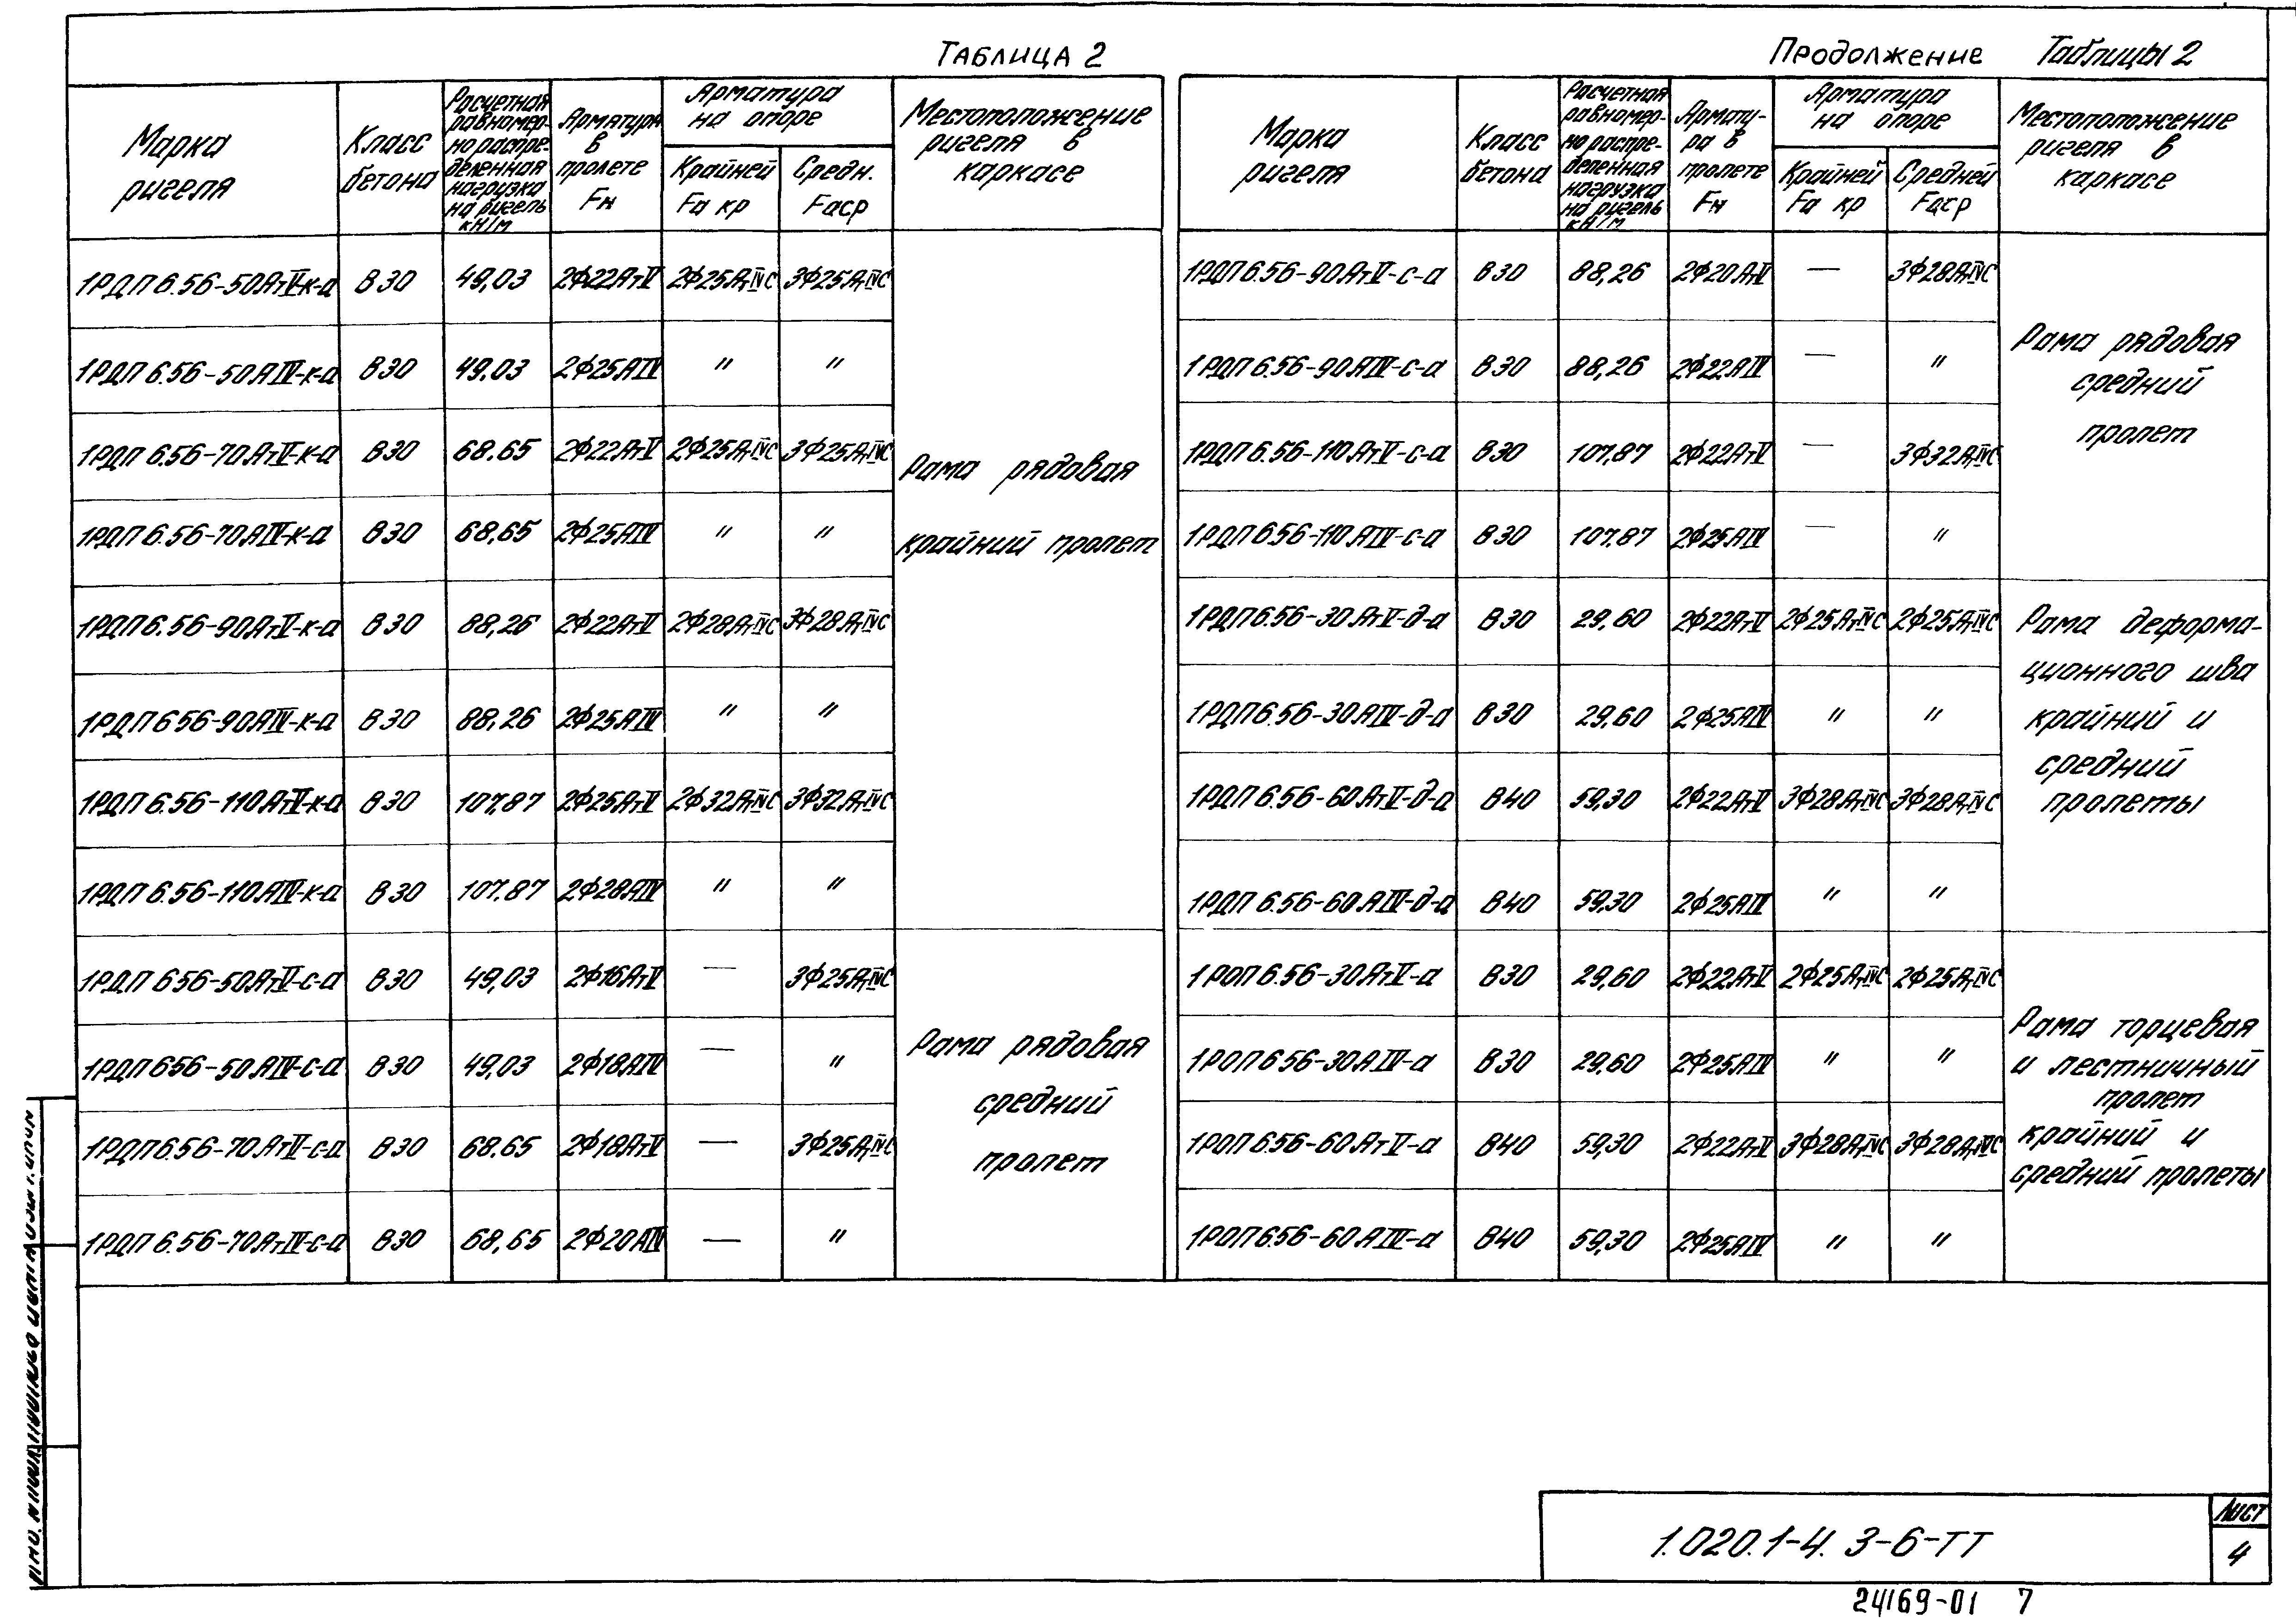 Таблица 2
Марка ригеля
Класс бетона
Расчетная равномер-но распре-деленная нагрузка на ригель кН/м
Арматура в пролете Fн
Арматура на опоре
Крайней Fа кр
Средн. Fаср
Местоположение ригеля в каркасе
1РДП 6.56-50АтV-к-а В30 49,03 2Ф22АтV 2Ф25АтIVС 3Ф25АтIVС
1РДП 6.56-50АIV-к-а В30 49.03 2Ф25АIV " "
1РДП 6.56-70АтV-к-а В30 68.65 2Ф22АтV 2Ф25АтIVС 3Ф25АтIVС
1РДП 6.56-70АIV-к-а В30 68,65 2Ф25АIV " "
1РДП 6.56-90АтV-к-а В30 88,26 2Ф22АтV 2Ф28АтIVС 3Ф28АтIVС
1РДП 6 56-90АIV-к-а В30 88,26 2Ф25АIV " "
1РДП 6.56-110АтV-к-а В30 107,87 2Ф25АтV 2Ф32АтIVС 3Ф32АтIVС
1РДП 6.56-110АIV-к-а В30 107.87 2Ф28АIV " "
Рама рядовая
крайний пролет
1РДП 6 56-50АтV-с-а В30 49,03 2Ф16АтV — 3Ф25АтIVС
1РДП 656-50АIV-с-а В30 49,03 2Ф18АIV — "
1РДП 6.56-70АтV-с-а В30 68.65 2Ф18АтV — 3Ф25АтIVС
1РДП 6.56-70АтIV-с-а В30 68,65 2Ф20АIV — "
Рама рядовая
средний
пролет
Продолжение Таблицы 2
Марка ригеля
Класс бетона
Расчетная равномер-но распре-деленная нагрузка на ригель кН/м
Армату-ра в пролете Fн
Арматура на опоре
Крайней Fа кр
Средней Fаср
Местоположение ригеля в каркасе
1РДП 6.56-90АтV-с-а В30 88,26 2Ф20АтV — 3Ф28АтIVС
1РДП 6.56-90АIV-с-а В30 88,26 2Ф22АIV — "
1РДП 6.56-110АтV-с-а В30 107,87 2Ф22АтV — 3Ф32АтIVС
1РДП 6.56-110АIV-с-а В30 107.87 2Ф25АIV — "
Рама рядовая
средний
пролет
1РДП 6.56-30АтV-д-а В30 29.60 2Ф22АтV 2Ф25АтIVС 2Ф25АтIVС
1РДП 6.56-30АIV-д-а В30 29,60 2Ф25АIV " "
1РДП 6.56-60АтV-д-а В40 59,30 2Ф22АтV 3Ф28АтIVС 3Ф28АтIVС
1РДП 6.56-60АIV-д-а В40 59,30 2Ф25АIV " "
Рама деформа-
ционного шва
крайний и
средний
пролеты
1РОП 6.56-30АтV-а В30 29,60 2Ф22АтV 2Ф25АтIVС 2Ф25АтIVС
1РОП 6 56-30АIV-а В30 29,60 2Ф25АIV " "
1РОП 6.56-60АтV-а В40 59,30 2Ф22АтV 3Ф28АтIVС 3Ф28АтIVС
1РОП 6.56-60АIV-а В40 59,30 2Ф25АIV " "
Рама торцевая
и лестничный
пролет
крайний и
средний пролеты
1.020.1-4. 3-6-ТТ
Лист
4
24169-01 7